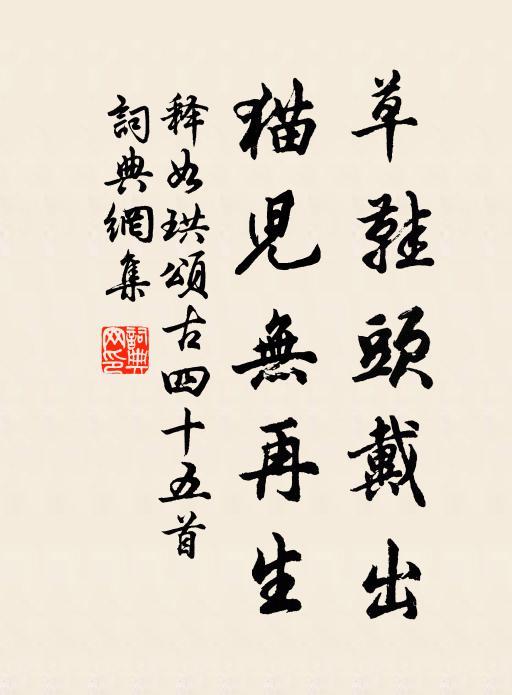 草鞋頭戴出
猫児無再生
释如珙頌古四十五首
詞典網集
詞典网印